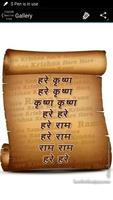 S Pen is in use
Gallery
हरे कृष्ण
हरे कृष्ण
कृष्ण कृष्ण
हरे हरे
हरे राम
हरे राम
राम राम
हरे हरे